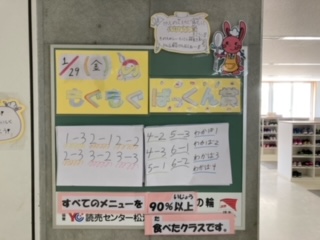 1/29 (金)
もぐもぐ ぱっくん賞
1-3 2-1 2-2
2-3 3-2 3-3
4-2 5-3 わかば1
4-3 6-1 わかば2
5-1 6-2 わかば3
わかば4
すべてのメニューを いじょう 90%以上 の輪
YC 読売センター松
た
食べたクラスです。